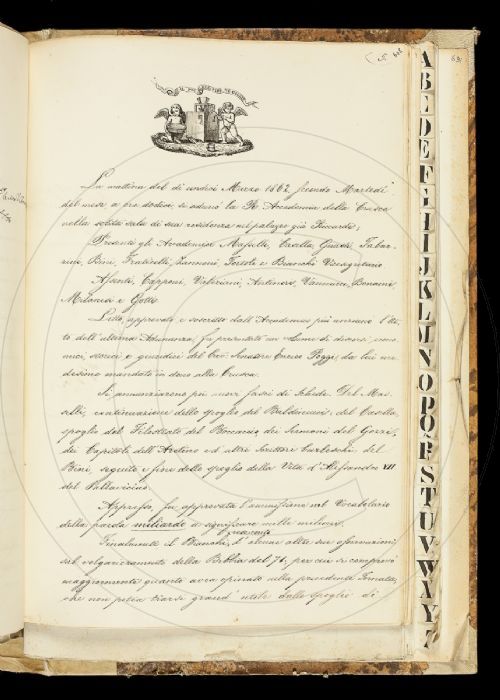 628
631
La mattina del dì undici Marzo 1862 secondo Martedì
del mese a ore dodici si adunò la R. Accademia della Crusca
nella solita sala di sua residenza nel palazzo già Riccardi;
Presenti gli Accademici Masselli, Casella, Giudici, Tabar-
rini, Bini, Fraticelli, Zannoni, Tortoli e Bianchi Vicesegretario
Assenti, Capponi, Valeriani, Vannucci, Bonaini,
Milanesi e Gotti.
Letto, approvato e soscritto dall'Accademico più anziano l'At-
to dell'ultima Adunanza, fu presentato un
storici e giuridici del Cav. Enrico Poggi, da lui me-
desimo mandato in dono alla Crusca.
Si annunziarono poi nuovi fasci di Schede. Del Mas-
selli, continuazione dello spoglio del Baldinucci, del Casella,
spoglio del Filostrato del Boccaccio, dei Sermoni del Gozzi,
dei Capitoli dell'Aretino ed altri Scrittori burleschi, del
Bini, seguito e fine dello spoglio della Vita d'Alessandro VII
del Pallavicino.
Appresso, fu approvata l'ammissione nel Vocabolario
della parola miliardo a significare mille milioni.
Finalmente il Bianchi, d'alcune altre sue osservazioni
sul volgarizzamento della Bibbia del 71. per cui si comprovò
maggiormente quanto avea opinato nella precedente Tornata,
che non potea trarsi grand'utile dallo spoglio di
A
B
C
D
E
F
G
H
I
J
K
L
M
N
O
P
Q
R
S
T
U
V
W
X
Y
Z